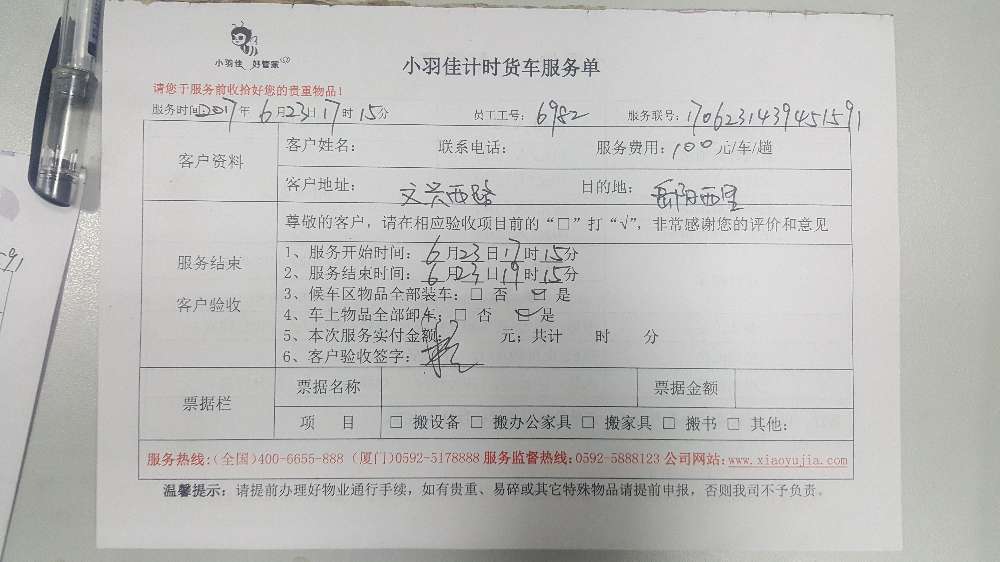 小羽佳 好管家
小羽佳计时货车服务单
请您于服务前收拾好您的贵重物品！
服务时间:2017年6月23日17时15分 员工工号：6982 服务联号：1706231439451591
客户资料
客户姓名： 联系电话： 服务费用：100元/车/趟
客户地址： 文兴西路 目的地： 岳阳西里
尊敬的客户，请在相应验收项目前的“□”打“√”，非常感谢您的评价和意见
服务结束
客户验收
1、服务开始时间：6月23日17时15分
2、服务结束时间：6月23日19时15分
3、候车区物品全部装车：□ 否 ☑ 是
4、车上物品全部卸车：□ 否 ☑ 是
5、本次服务实付金额： 元；共计 时 分
6、客户验收签字：
票据栏
票据名称 票据金额
项 目 □ 搬设备 □ 搬办公家具 □ 搬家具 □ 搬书 □ 其他：
服务热线:(全国)400-6655-888 (厦门)0592-5178888 服务监督热线:0592-5888123 公司网站:www.xiaoyujia.com
温馨提示：请提前办理好物业通行手续，如有贵重、易碎或其它特殊物品请提前申报，否则我司不予负责。